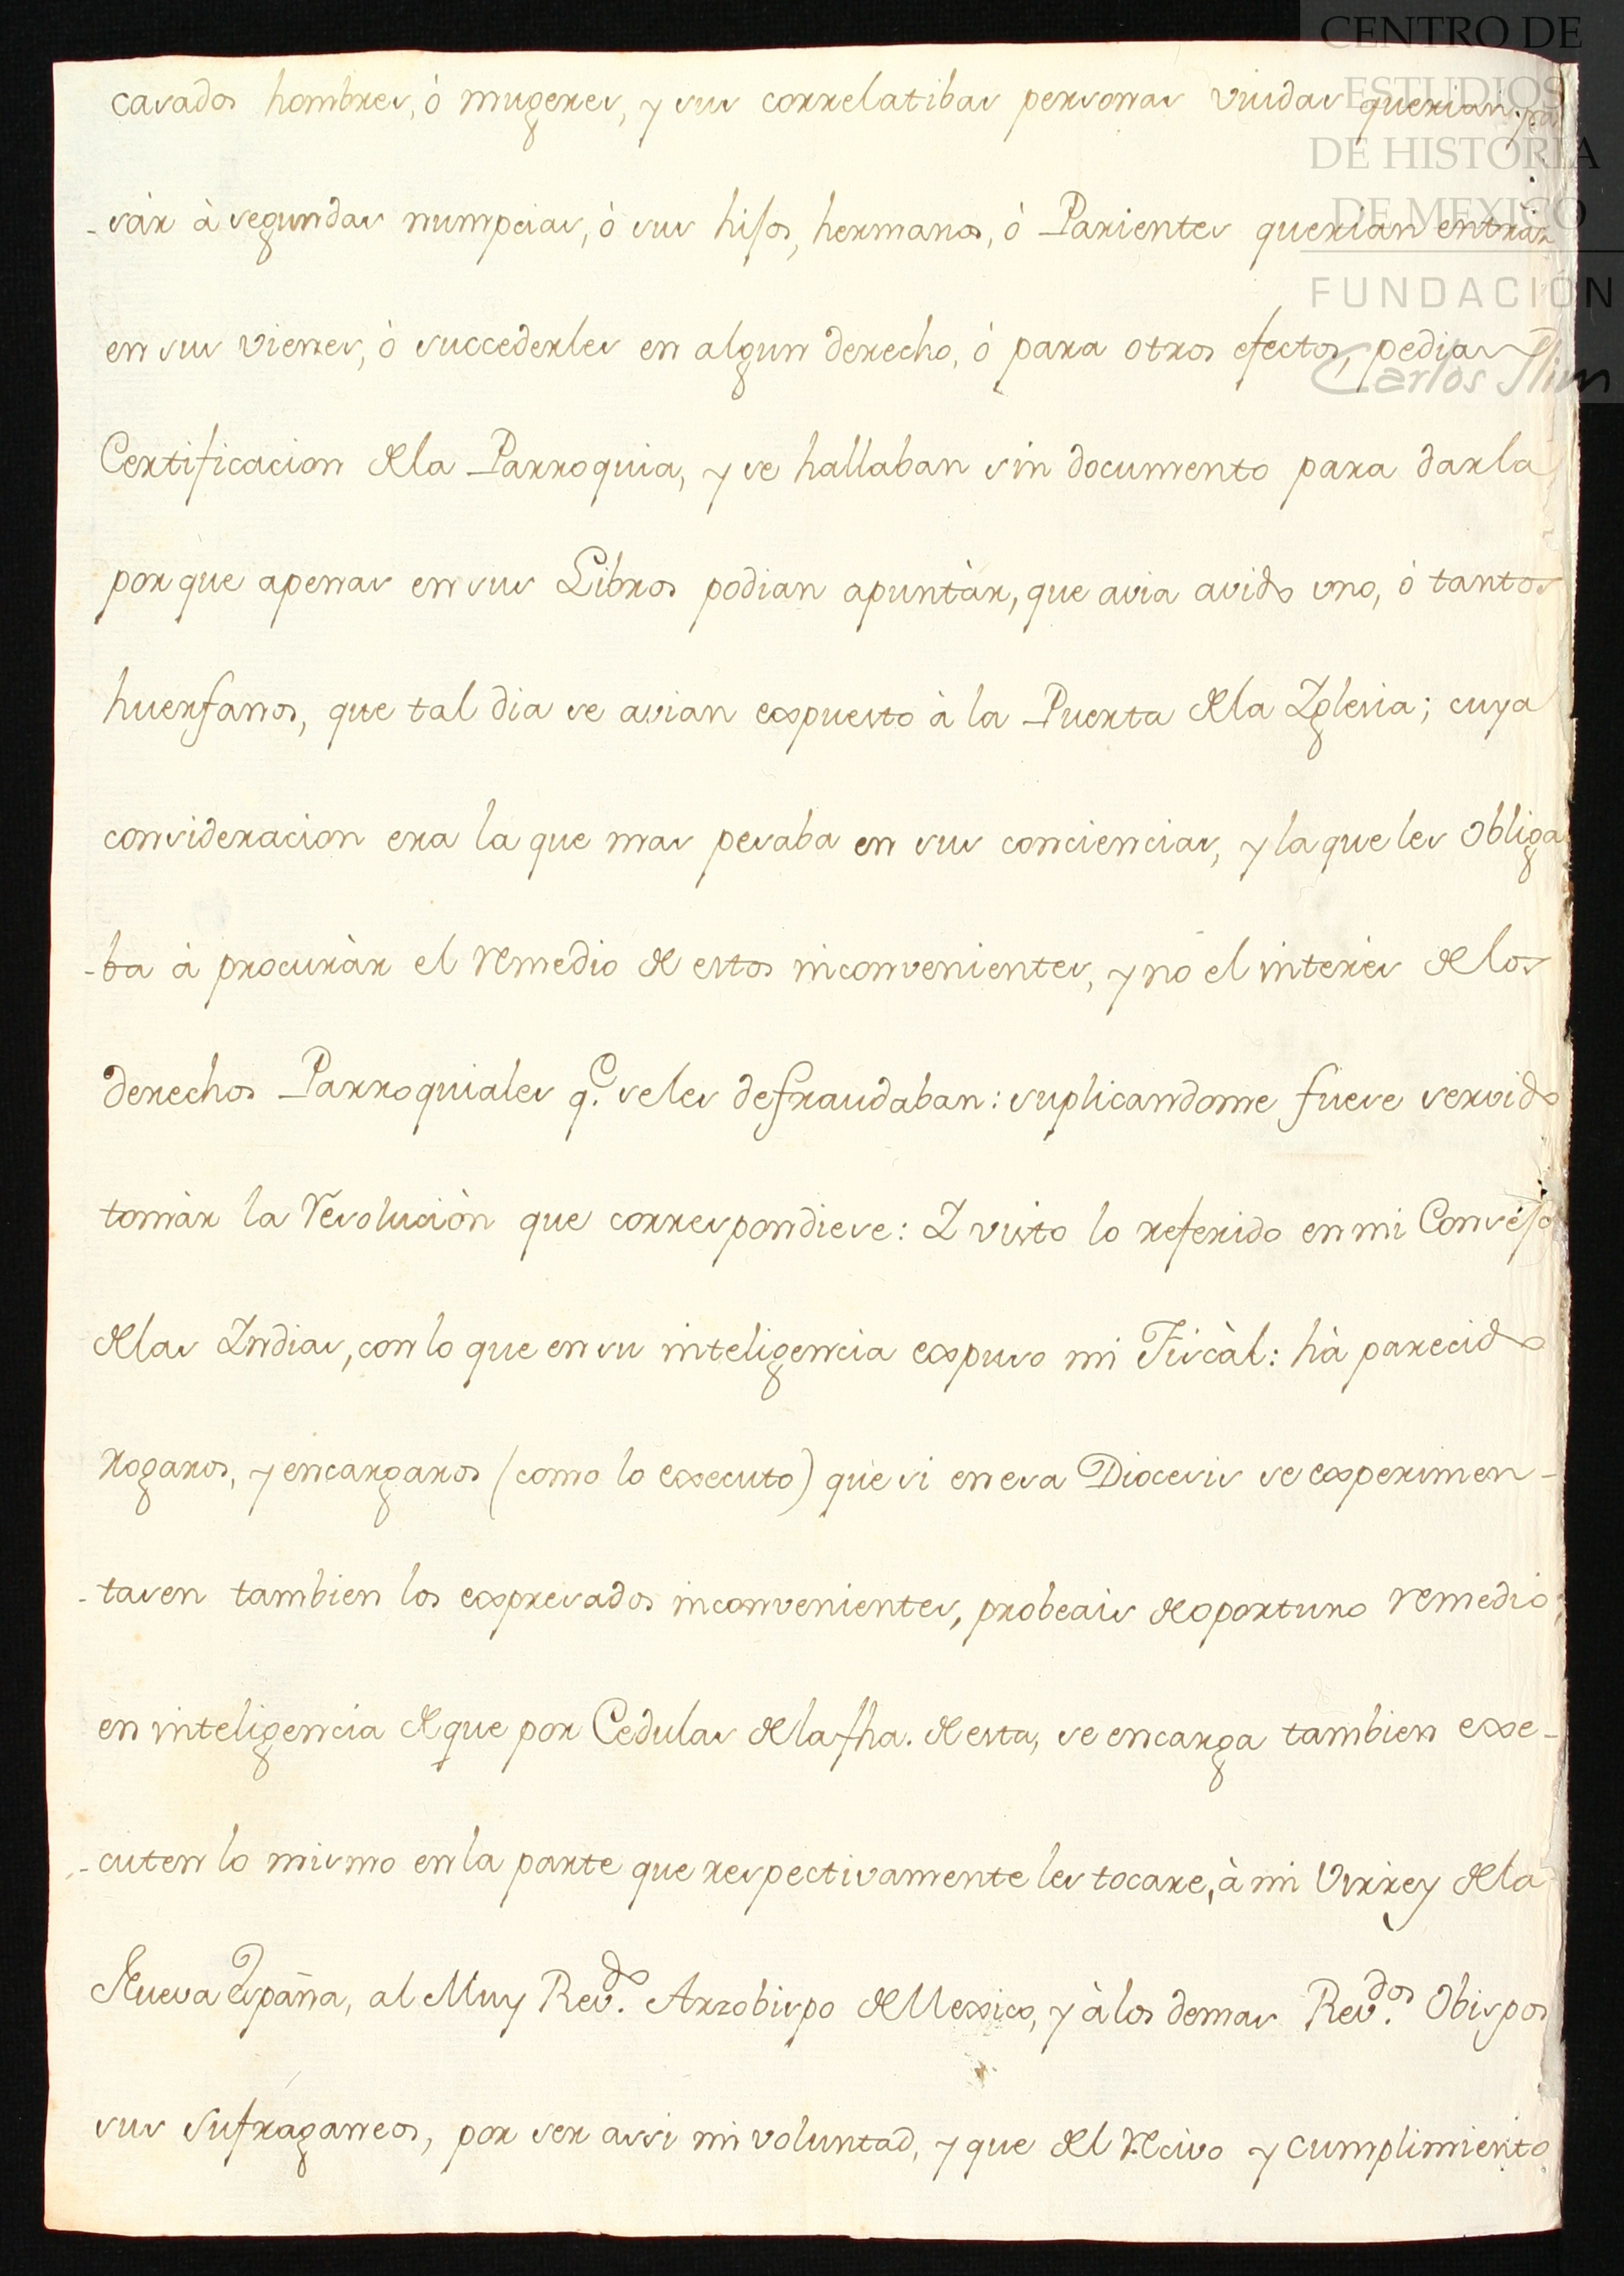 casados hombres, ò mugeres, y sus correlatibas personas viudas querian pa
-sàr à segundas numpcias, ò sus hijos, hermanos, ò Parientes querian entràr
en sus vienes, ò succederles en algun derecho, ò para otros efectos, pedian
Certificacion dela Parroquia, y se hallaban sin documento para darla
porque apenas en sus Libros podian apuntàr, que avia avido uno, ò tantos
huerfanos, que tal dia se avian expuesto à la Puerta dela Iglesia; cuya
consideracion era la que mas pesaba en sus conciencias, y la que les obliga
-ba à procuràr el remedio de estos inconvenientes, y no el interès delos
derechos Parroquiales q.e seles defraudaban: suplicandome fuese servido
tomàr la resoluciòn que correspondiese: I visto lo referido en mi Consejo
delas Indias, con lo que en su inteligencia expuso mi Fiscàl: hà parecido
rogaros, y encargaros (como lo executo) que si en esa Diocesis se experimen-
-tasen tambien los expresados inconvenientes, probeais de oportuno remedio;
en inteligencia de que por Cedulas dela fha. de esta, se encarga tambien exe-
-cuten lo mismo en la parte que respectivamente les tocare, à mi Virrey dela
Nueva España, al Muy Revdo. Arzobispo de Mexico, y à los demas Revdos. Obispos
sus Sufraganeos, por ser assi mi voluntad, y que del recivo y cumplimiento
CENTRO DE
ESTUDIOS
DE HISTORIA
DE MEXICO
FUNDACIÓN
Carlos Slim